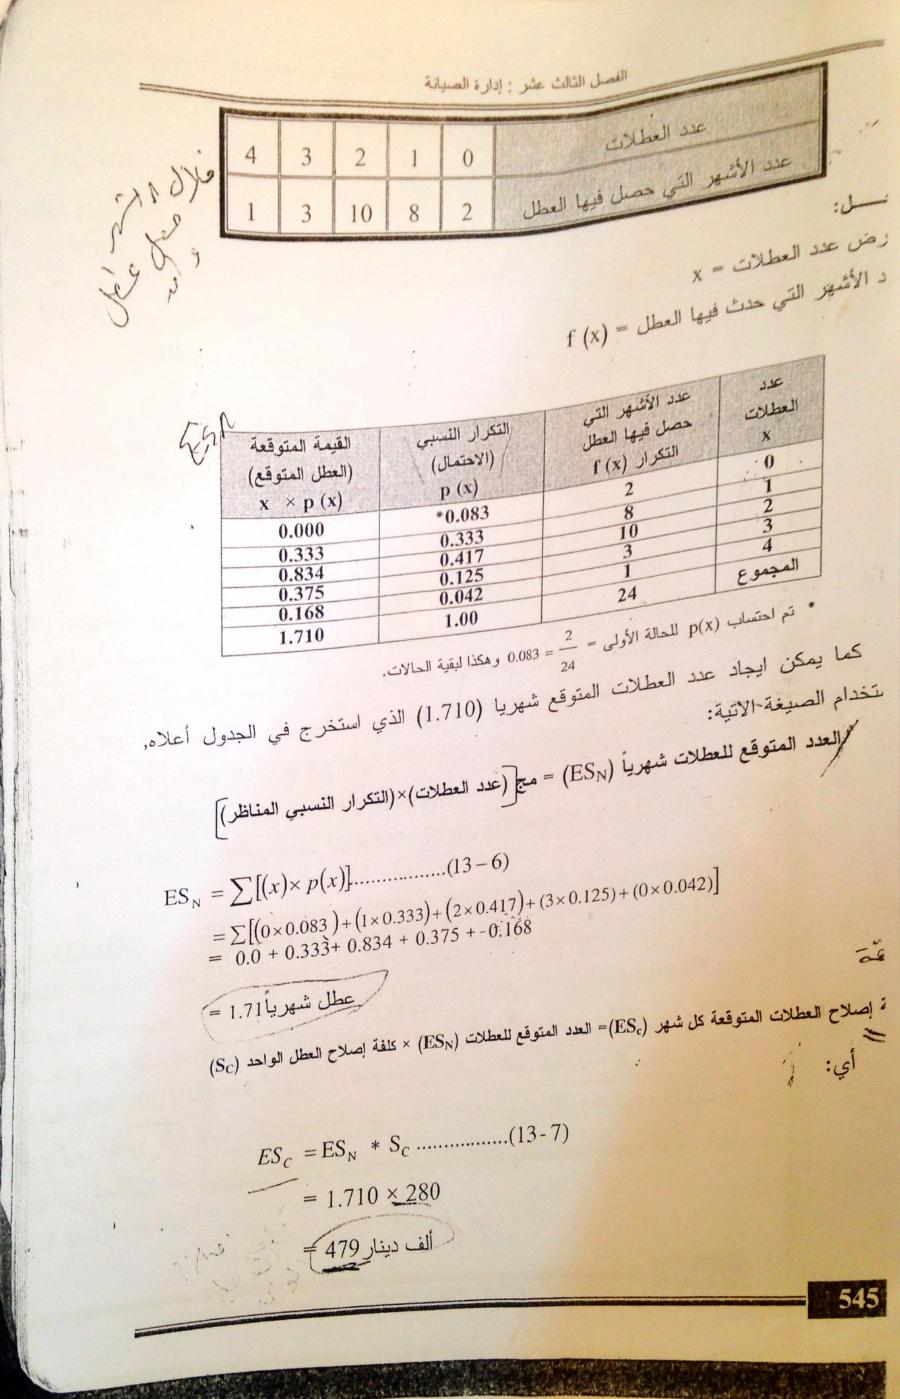 الفصل الثالث عشر : إدارة الصيانة
عدد العطلات 0 1 2 3 4
عدد الأشهر التي حصل فيها العطل 2 8 10 3 1
خلال
ـسل:
رض عدد العطلات = x
د الأشهر التي حدث فيها العطل = f (x)
عدد العطلات x
عدد الأشهر التي حصل فيها العطل التكرار f (x)
التكرار النسبي (الاحتمال) p (x)
القيمة المتوقعة (العطل المتوقع) x × p (x)
0 2 *0.083 0.000
1 8 0.333 0.333
2 10 0.417 0.834
3 3 0.125 0.375
4 1 0.042 0.168
المجموع 24 1.00 1.710
* تم احتساب p(x) للحالة الأولى = 2/24 = 0.083 وهكذا لبقية الحالات.
كما يمكن ايجاد عدد العطلات المتوقع شهريا (1.710) الذي استخرج في الجدول أعلاه,
ـتخدام الصيغة الاتية:
العدد المتوقع للعطلات شهرياً (ES_N) = مج[(عدد العطلات)×(التكرار النسبي المناظر)]
ES_N = ∑[(x)× p(x)].................(13–6)
= ∑[(0×0.083)+(1×0.333)+(2×0.417)+(3×0.125)+(0×0.042)]
= 0.0 + 0.333+ 0.834 + 0.375 + 0.168
= 1.71 عطل شهرياً
ة إصلاح العطلات المتوقعة كل شهر (ES_c)= العدد المتوقع للعطلات (ES_N) × كلفة إصلاح العطل الواحد (S_C)
أي:
ES_C = ES_N * S_C .................(13-7)
= 1.710 × 280
= 479 ألف دينار
545